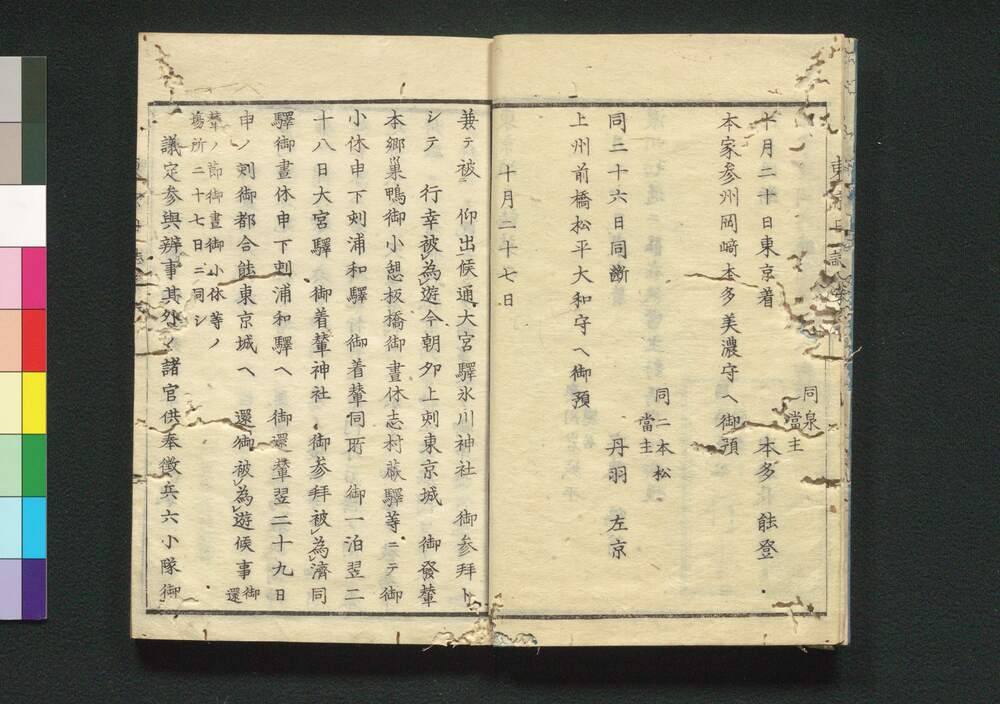 同泉
當主
本多 能登
十月二十日東京着
本家参州岡﨑本多美濃守ヘ御預
同二本松
當主
丹羽 左京
同二十六日同斷
上州前橋松平大和守ヘ御預
十月二十七日
兼テ被 仰出候通大宮驛氷川神社 御參拜ト
シテ 行幸被為遊今朝卯上刻東京城 御發輦
本郷巢鴨御小憩板橋御晝休志村蕨驛等ニテ御
小休申下刻浦和驛 御着輦同所 御一泊翌二
十八日大宮驛 御着輦神社 御參拜被為濟同
驛御晝休申下刻浦和驛ヘ 御還輦翌二十九日
申ノ刻御都合能東京城ヘ 還御被為遊候事 御還
輦ノ節御晝御小休等ノ
場所二十七日ニ同シ
議定參與辨事其外ノ諸官供奉徴兵六小隊御